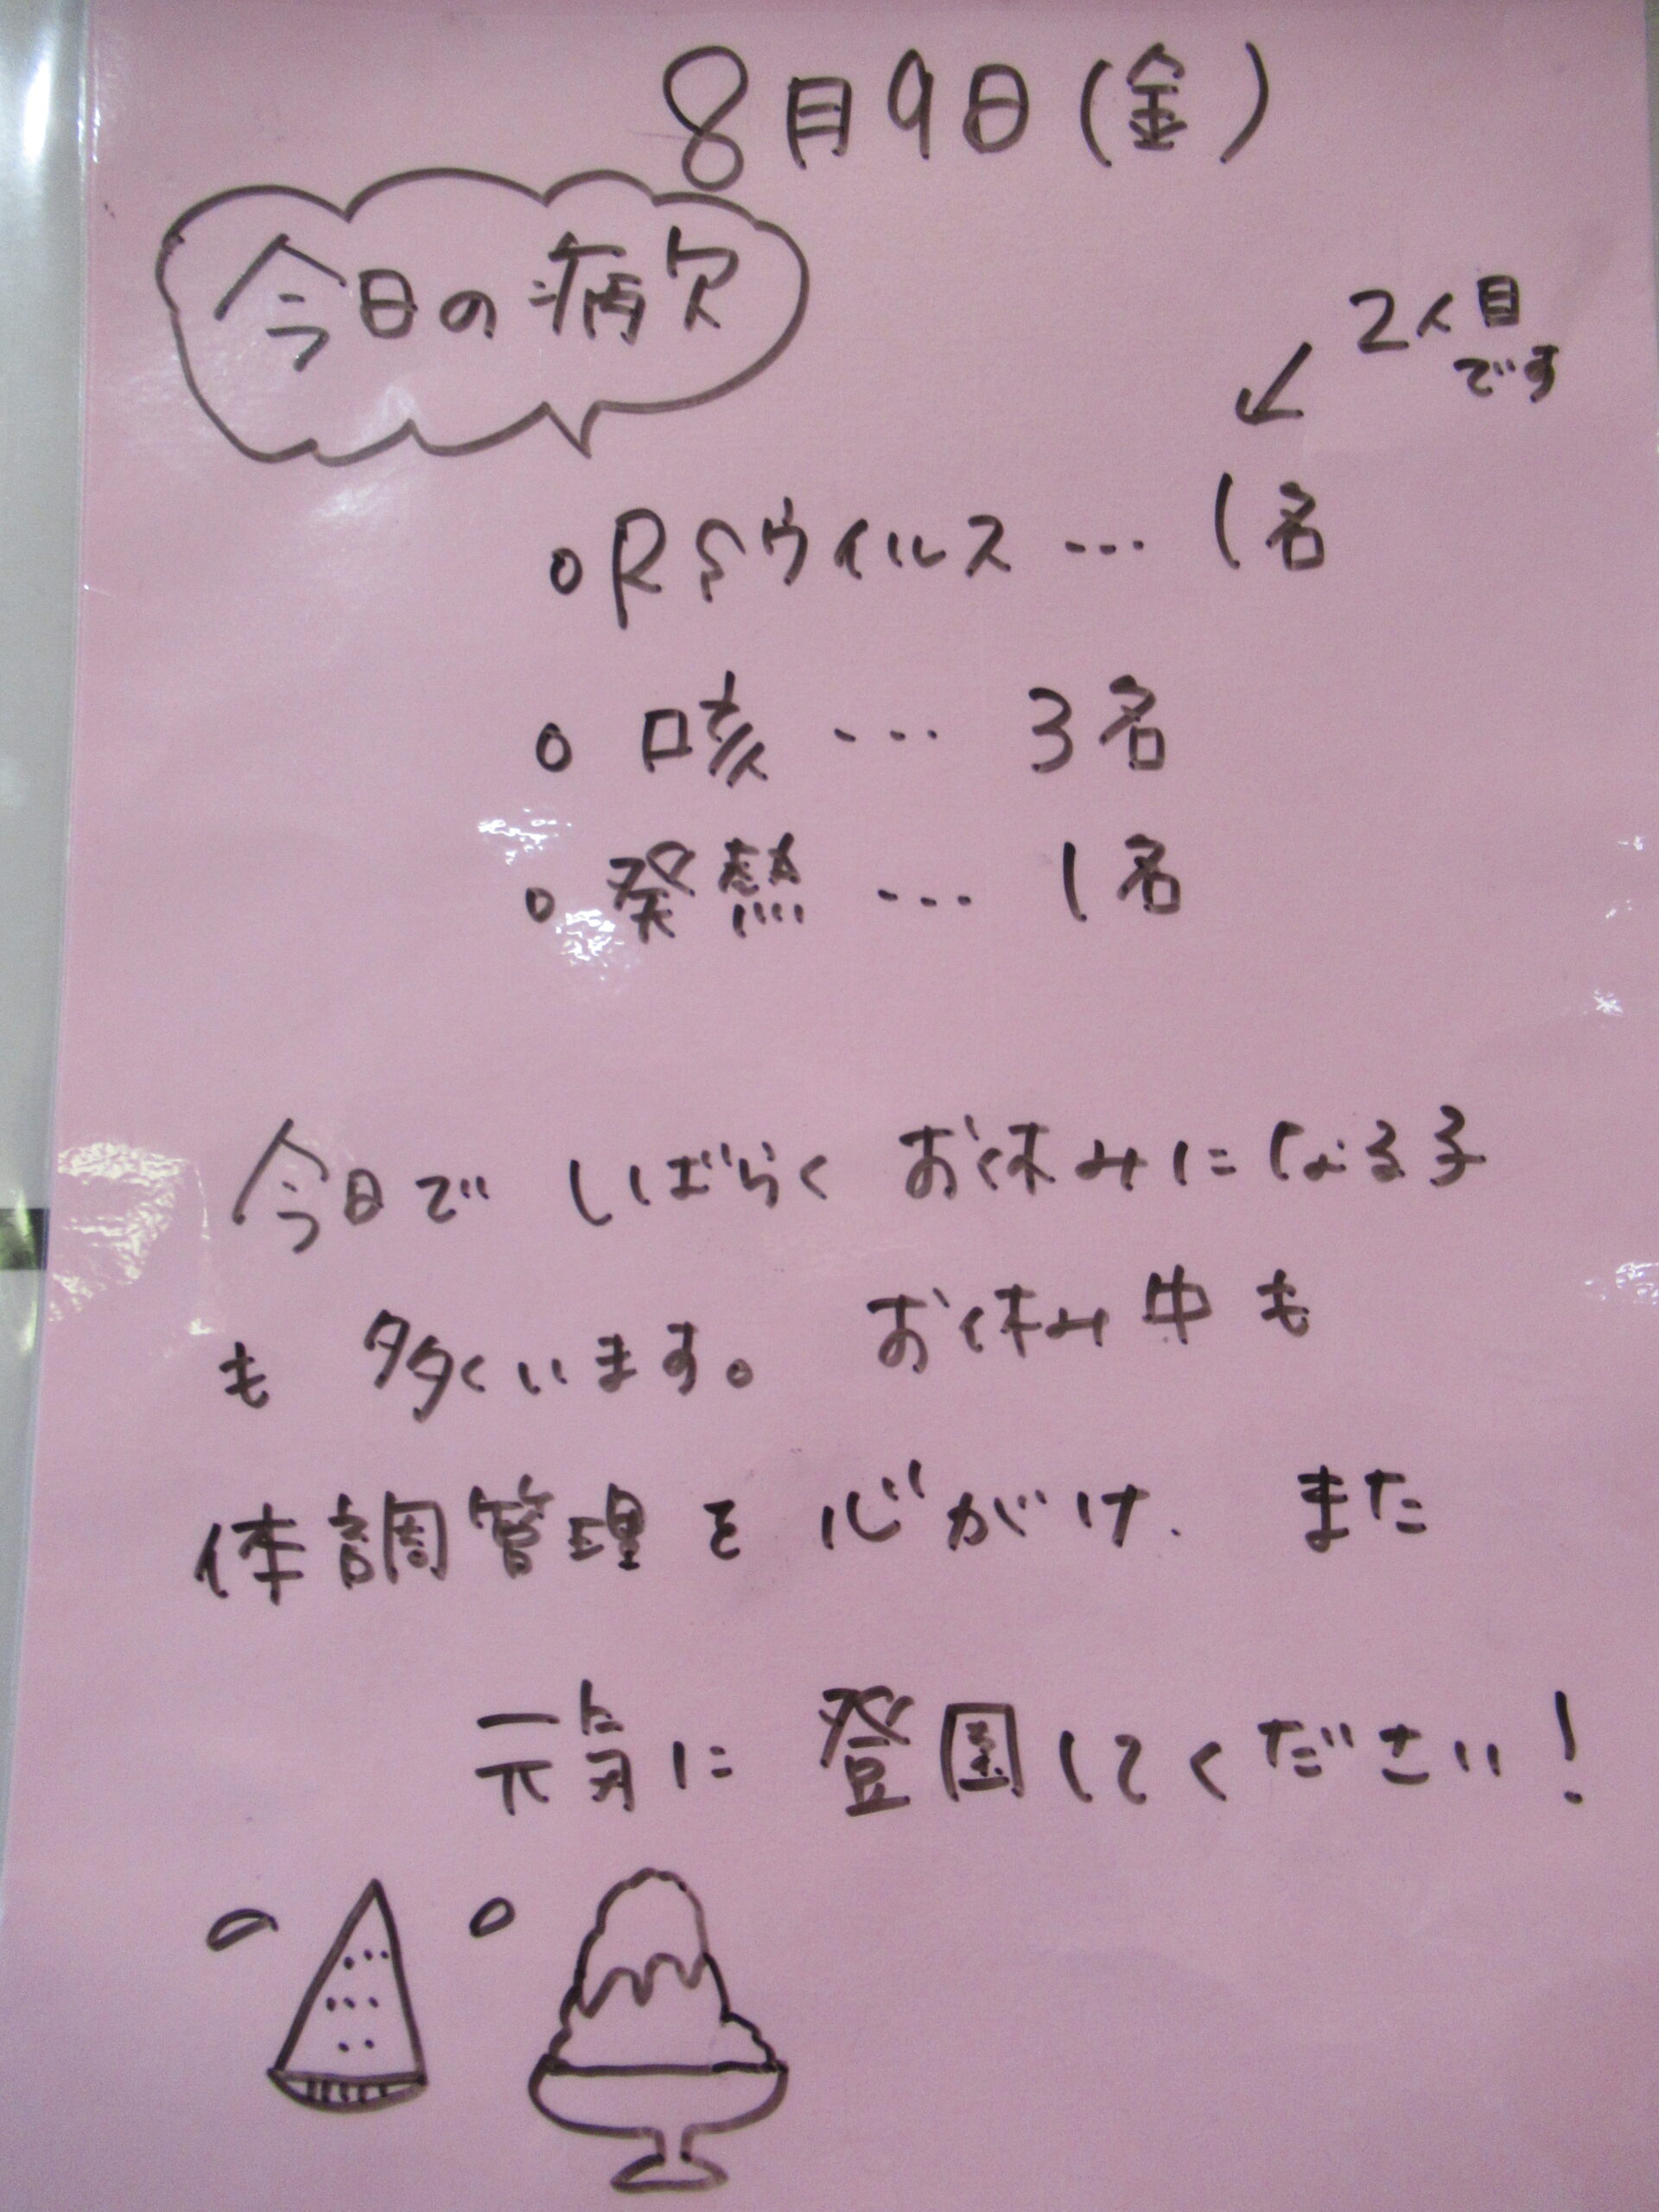 8月9日(金)
今日の病欠
2人目
です
○RSウイルス… 1名
○ 咳… 3名
○発熱… 1名
今日で しばらく お休みになる子
も 多くいます。 お休み中も
体調管理を心がけ、また
元気に登園してください!